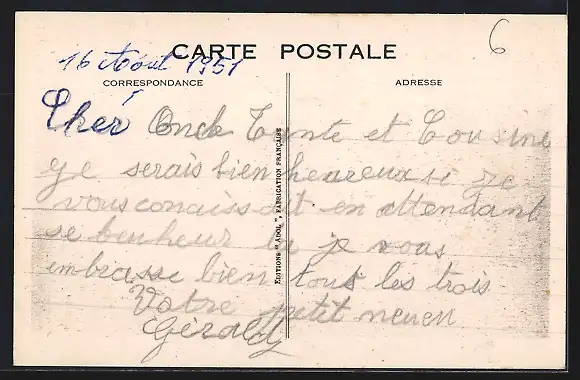 6
CARTE POSTALE
16 Aout 1951
CORRESPONDANCE
ADRESSE
Cher Oncle Tante et Cousine
Je serais bien heareux si je
vous conaissait en attendant
se bonheur je vous
embrasse bien tous les trois
Votre petit neveu
Gérald
EDITIONS "ADOL", FABRICATION FRANÇAISE